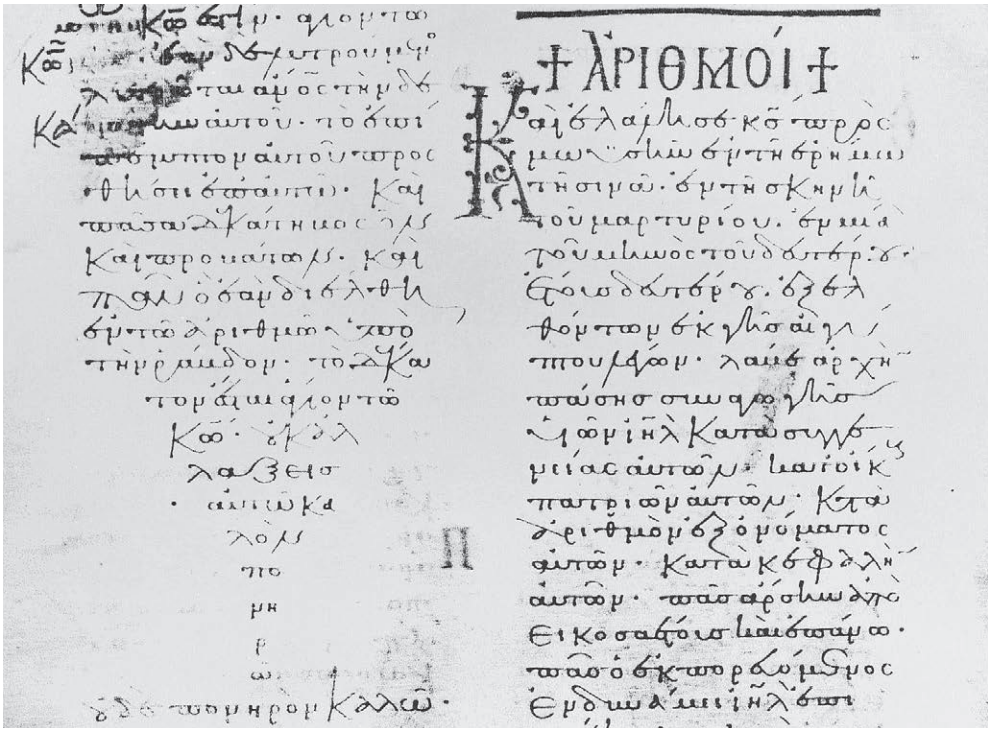 κῶ ἐστιν· ἅγιον τῶ
κῶ· ἐὰν δὲ λυτρούμεν
λυτρῶται ἀνος τὴν δε
κά αὐτοῦ· τὸ ἐπί
πεμπτον αὐτοῦ προς
θήσει ἐπαυτῶ· καὶ
πᾶσα δεκάτη βοῶν
καὶ προβάτων· καὶ
πᾶν ὃ ἐὰν διέλθη
ἐν τῶ ἀριθμῶ ὑπὸ
τὴν ῥάβδον· τὸ δέκα
τον ἔσται ἅγιον τῶ
κῶ· οὐκ ἀλ
λάξεις
αὐτῶ κα
λὸν
πο
νη
ρ
ῶ
οὐδε πονηρὸν καλῶ·
+ ἈΡΙΘΜΟΊ +
Καὶ ἐλάλησε κς πρὸς
μωϋσῆν ἐν τῆ ἐρήμω
τῆ σινᾶ· ἐν τῆ σκηνῆ
τοῦ μαρτυρίου· ἐν μιᾶ
τοῦ μηνὸς τοῦ δευτέρου·
ἔτους δευτέρου· ἐξελ
θόντων ἐκ γῆς αἰγύ
πτου λέγων· λάβε ἀρχὴν
πάσης συναγωγῆς
υἱῶν ιηλ κατὰ συγγε
νείας αὐτῶν· κατοίκους
πατριῶν αὐτῶν· κατὰ
ἀριθμὸν ἐξ ὀνόματος
αὐτῶν· κατὰ κεφαλὴν
αὐτῶν· πᾶς ἄρσην ἀπὸ
εἰκοσαετοῦς καὶ ἐπάνω·
πᾶς ὁ ἐκπορευόμενος
ἐν δυνάμει ιηλ ἐπι